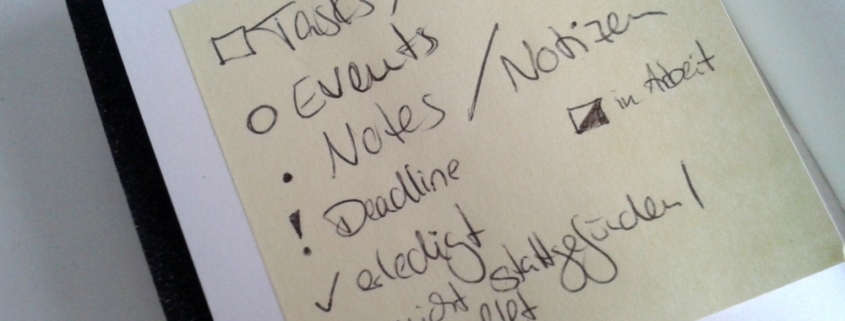 □ Tasks /
○ Events
• Notes / Notizen
◪ in Arbeit
! Deadline
✓ erledigt
nicht stattgefunden /